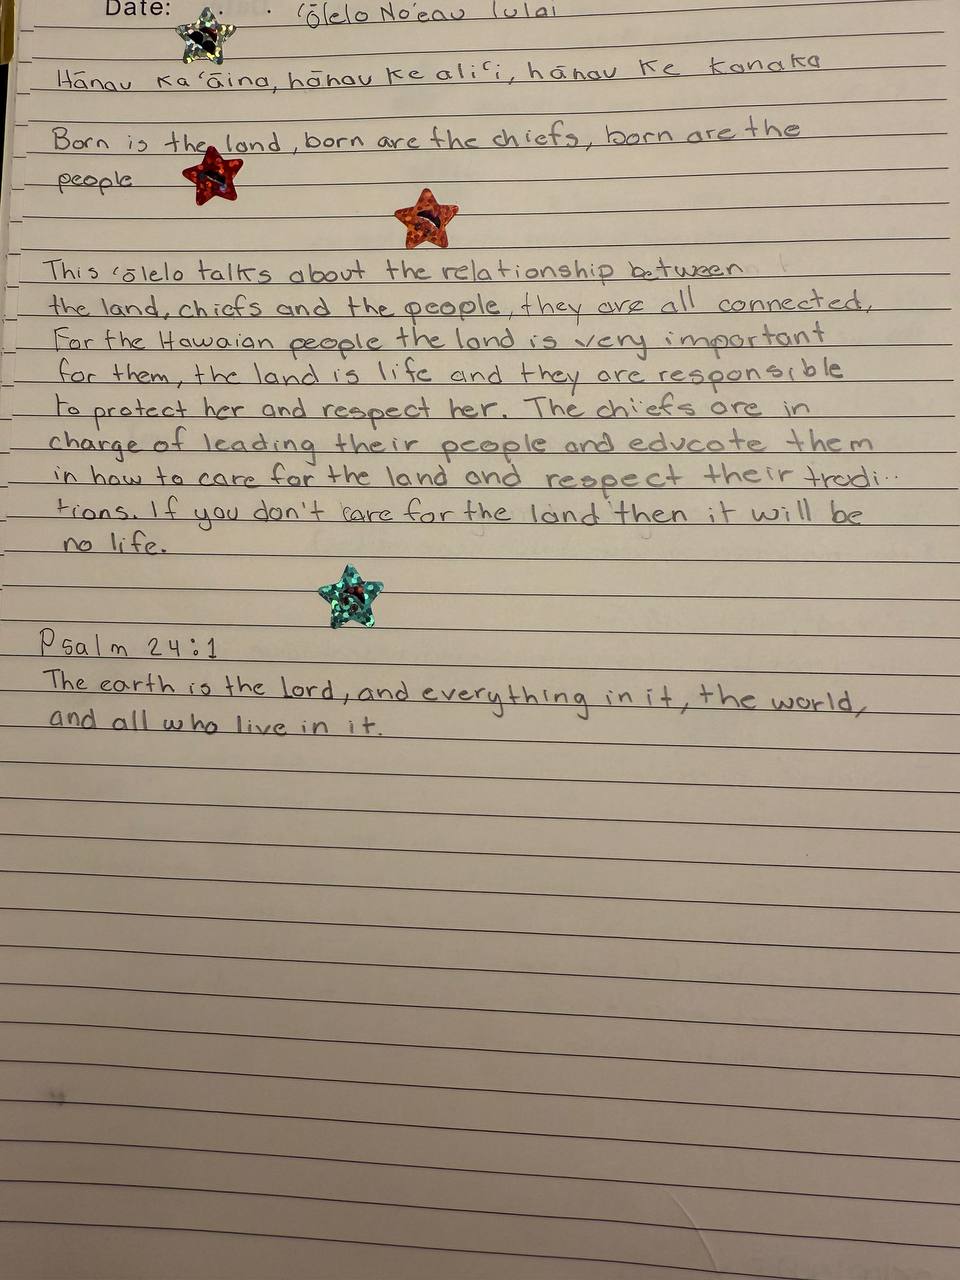 Date: ʻōlelo Noʻeau Iulai
Hānau ka ʻāina, hānau ke aliʻi, hānau ke kanaka
Born is the land, born are the chiefs, born are the
people
This ʻōlelo talks about the relationship between
the land, chiefs and the people, they are all connected.
For the Hawaian people the land is very important
for them, the land is life and they are responsible
to protect her and respect her. The chiefs are in
charge of leading their people and educate them
in how to care for the land and respect their tradi..
tions. If you don't care for the land then it will be
no life.
Psalm 24:1
The earth is the Lord, and everything in it, the world,
and all who live in it.